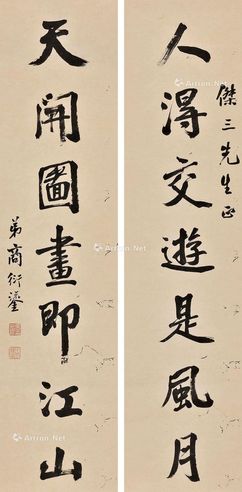 傑三先生正
人得交遊是風月
天開圖畫即江山
弟商衍鎏
Artron.Net